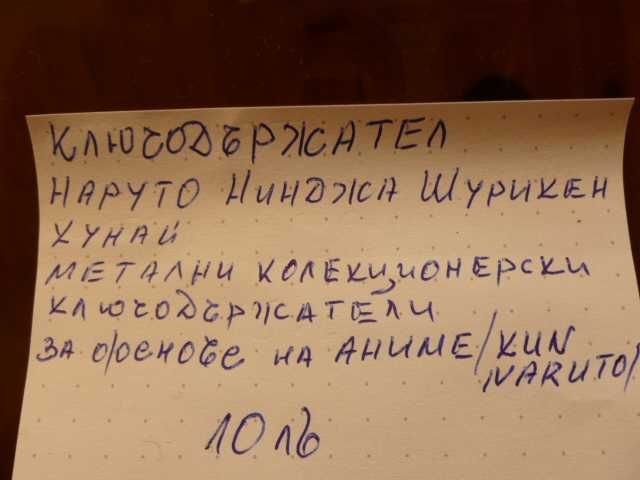 КЛЮЧОДЪРЖАТЕЛ
НАРУТО НИНДЖА ШУРИКЕН
КУНАЙ
МЕТАЛНИ КОЛЕКЦИОНЕРСКИ
КЛЮЧОДЪРЖАТЕЛИ
ЗА ФЕНОВЕ НА АНИМЕ/KUN
NARUTO/
10 лв